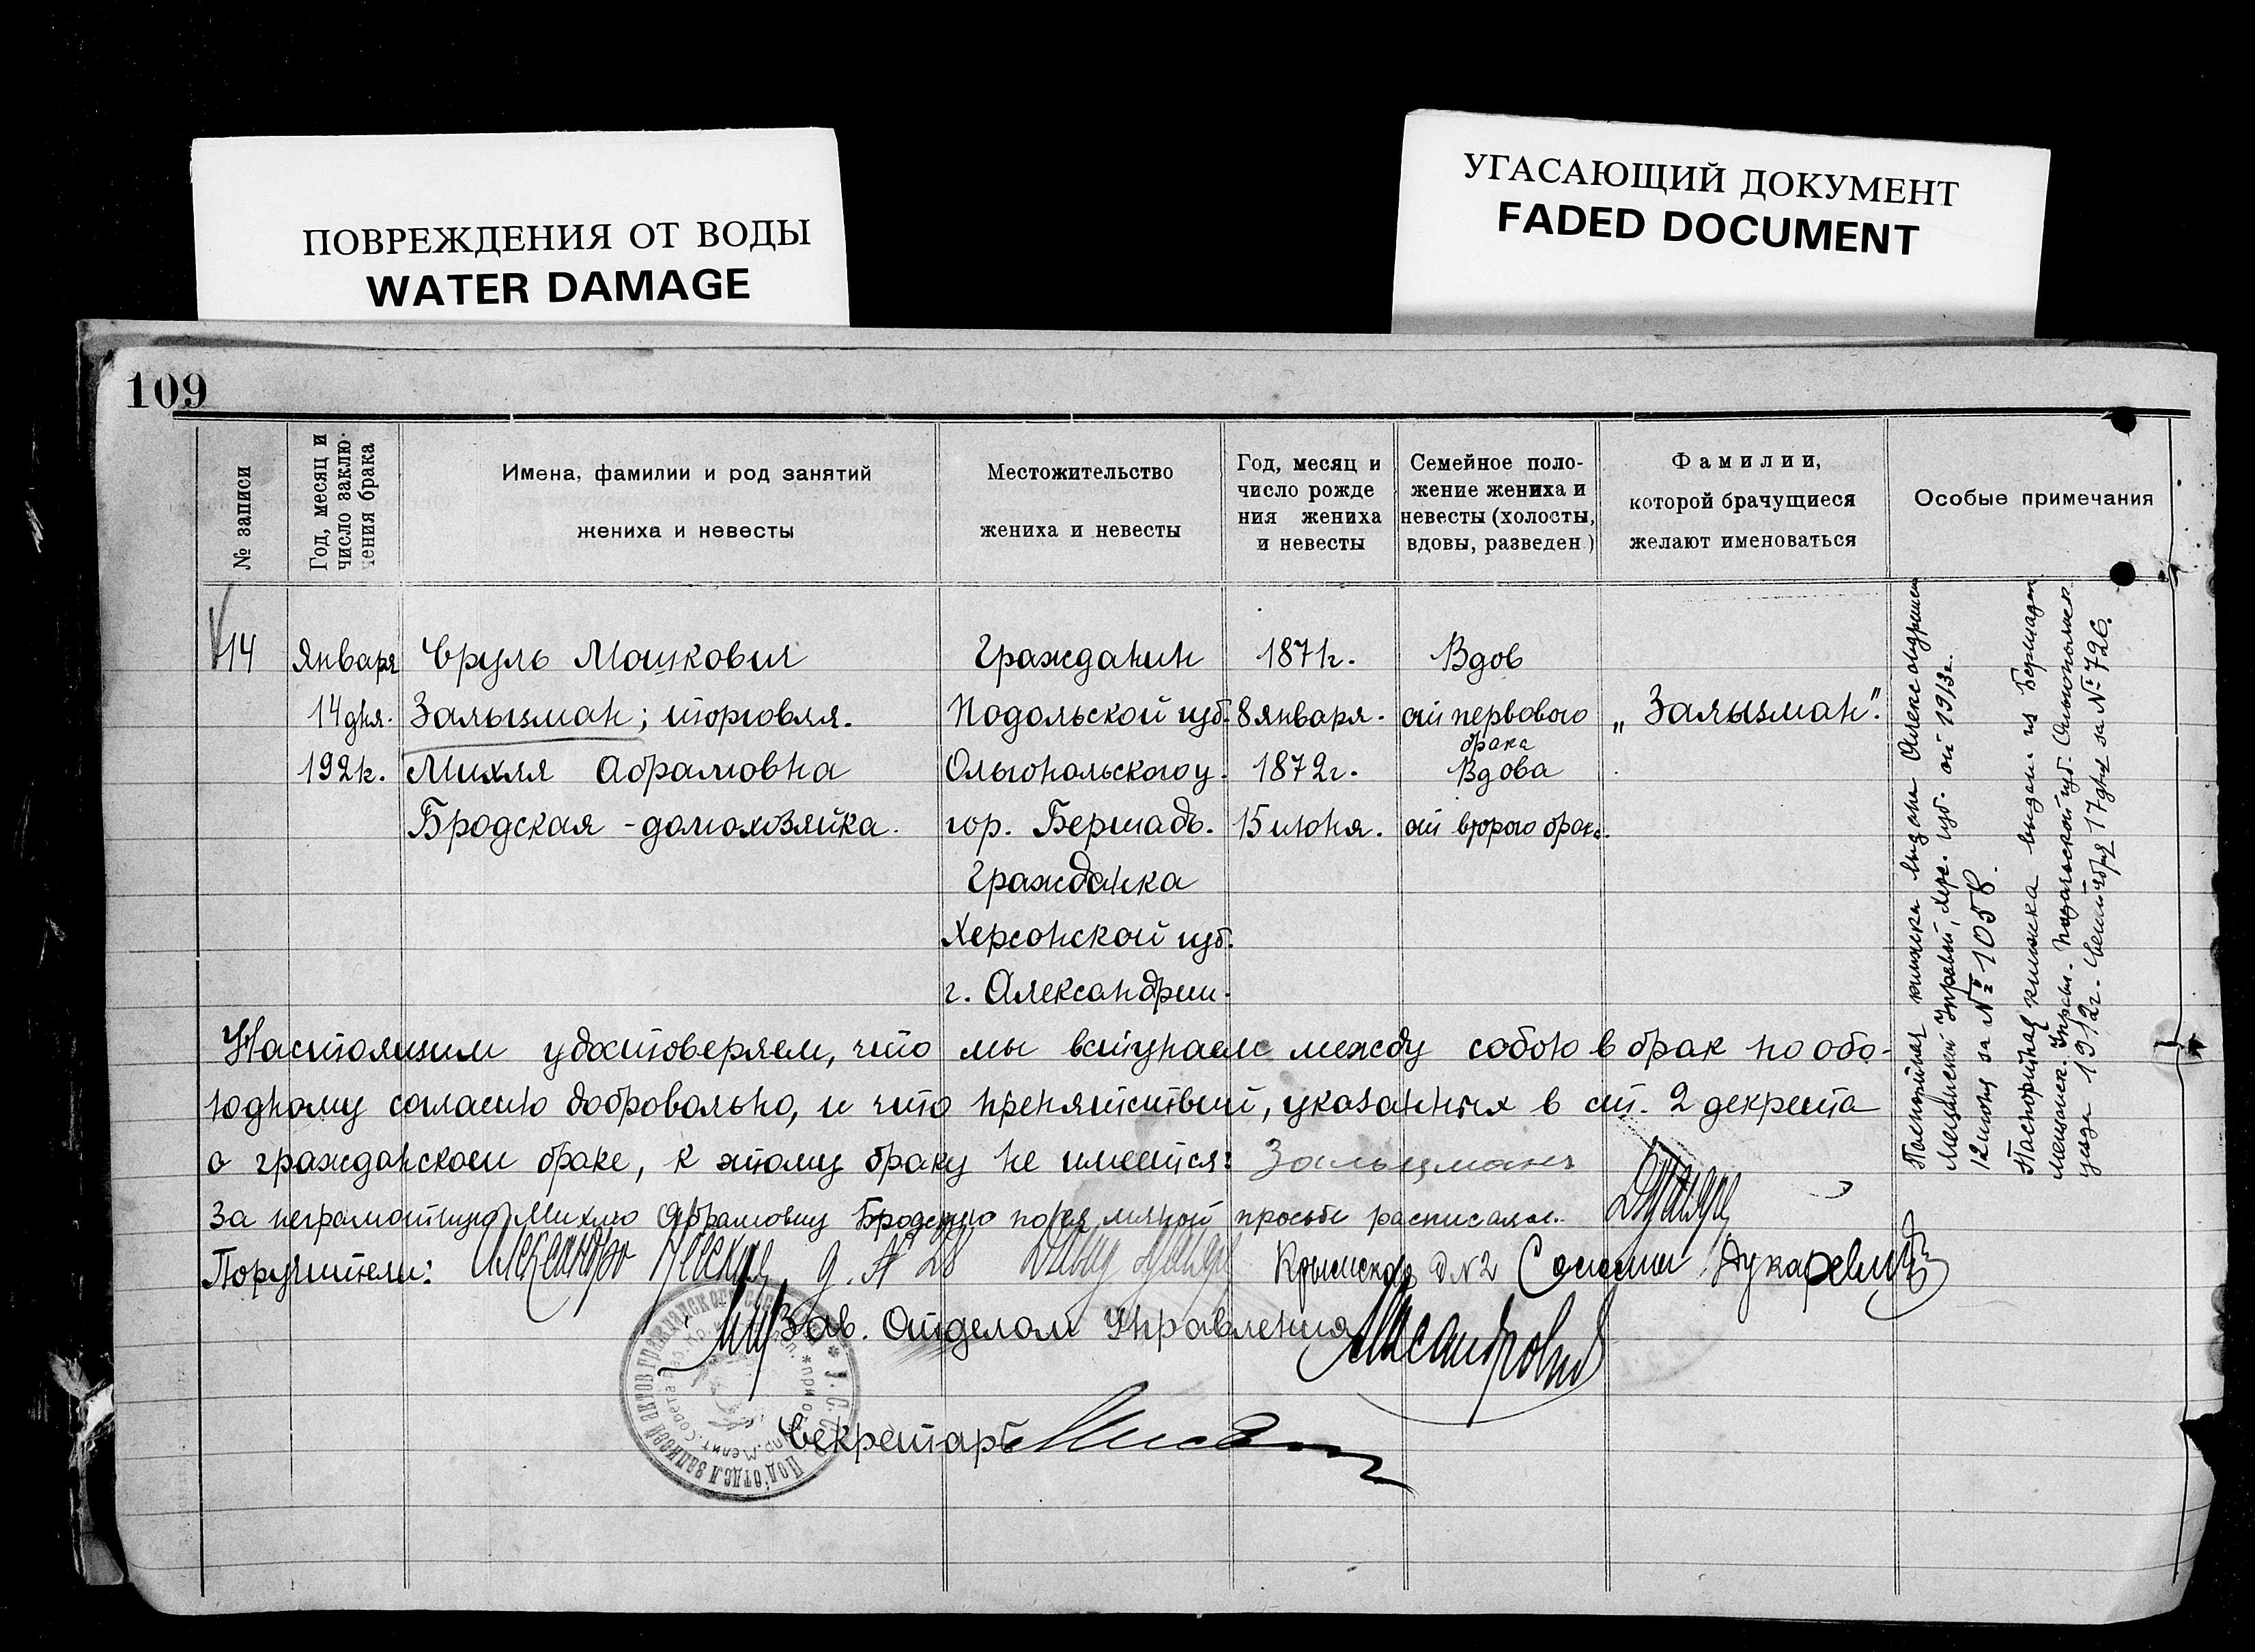 ПОВРЕЖДЕНИЯ ОТ ВОДЫ
WATER DAMAGE
УГАСАЮЩИЙ ДОКУМЕНТ
FADED DOCUMENT
109
№ записи
Год, месяц и
число заклю-
чения брака
Имена, фамилии и род занятий
жениха и невесты
Местожительство
жениха и невесты
Год, месяц и
число рожде
ния жениха
и невесты
Семейное поло-
жение жениха и
невесты (холосты,
вдовы, разведен)
Фамилии,
которой брачущиеся
желают именоваться
Особые примечания
14
Января
14 дня.
1921г.
Сруль Мошкович
Зальцман; торговля.
Михля Абрамовна
Бродская - домохозяйка.
Гражданин
Подольской губ.
Ольгопольского у.
гор. Бершадь.
Гражданка
Херсонской губ.
г. Александрии.
1871г.
8 января.
1872г.
15 июня.
Вдов
от первового
брака
Вдова
от второго брака.
„Зальцман".
Паспортная книжка выдана Александрийск
Мещанской Управой, Хер. губ. от 1913г.
12 июня за № 1058.
Паспортная книжка выдан. из Бершадск
мещанск. Управы. Подольской губ. Ольгопольск
уезда 1912г. Сентября 17 дня за № 726.
Настоящим удостоверяем, что мы вступаем между собою в брак по обо-
юдному согласию добровольно, и что препятствий, указанных в ст. 2 декрета
о гражданском браке, к этому браку не имеется: Зальцманъ
За неграмотную Михлю Абрамовну Бродскую по её личной просьбе расписался.
Поручители: Александро Невская д. № 28 Давид Крымская д № 2
Зав. Отделом Управления
Секретарь
Под'отдел записей актов гражданского